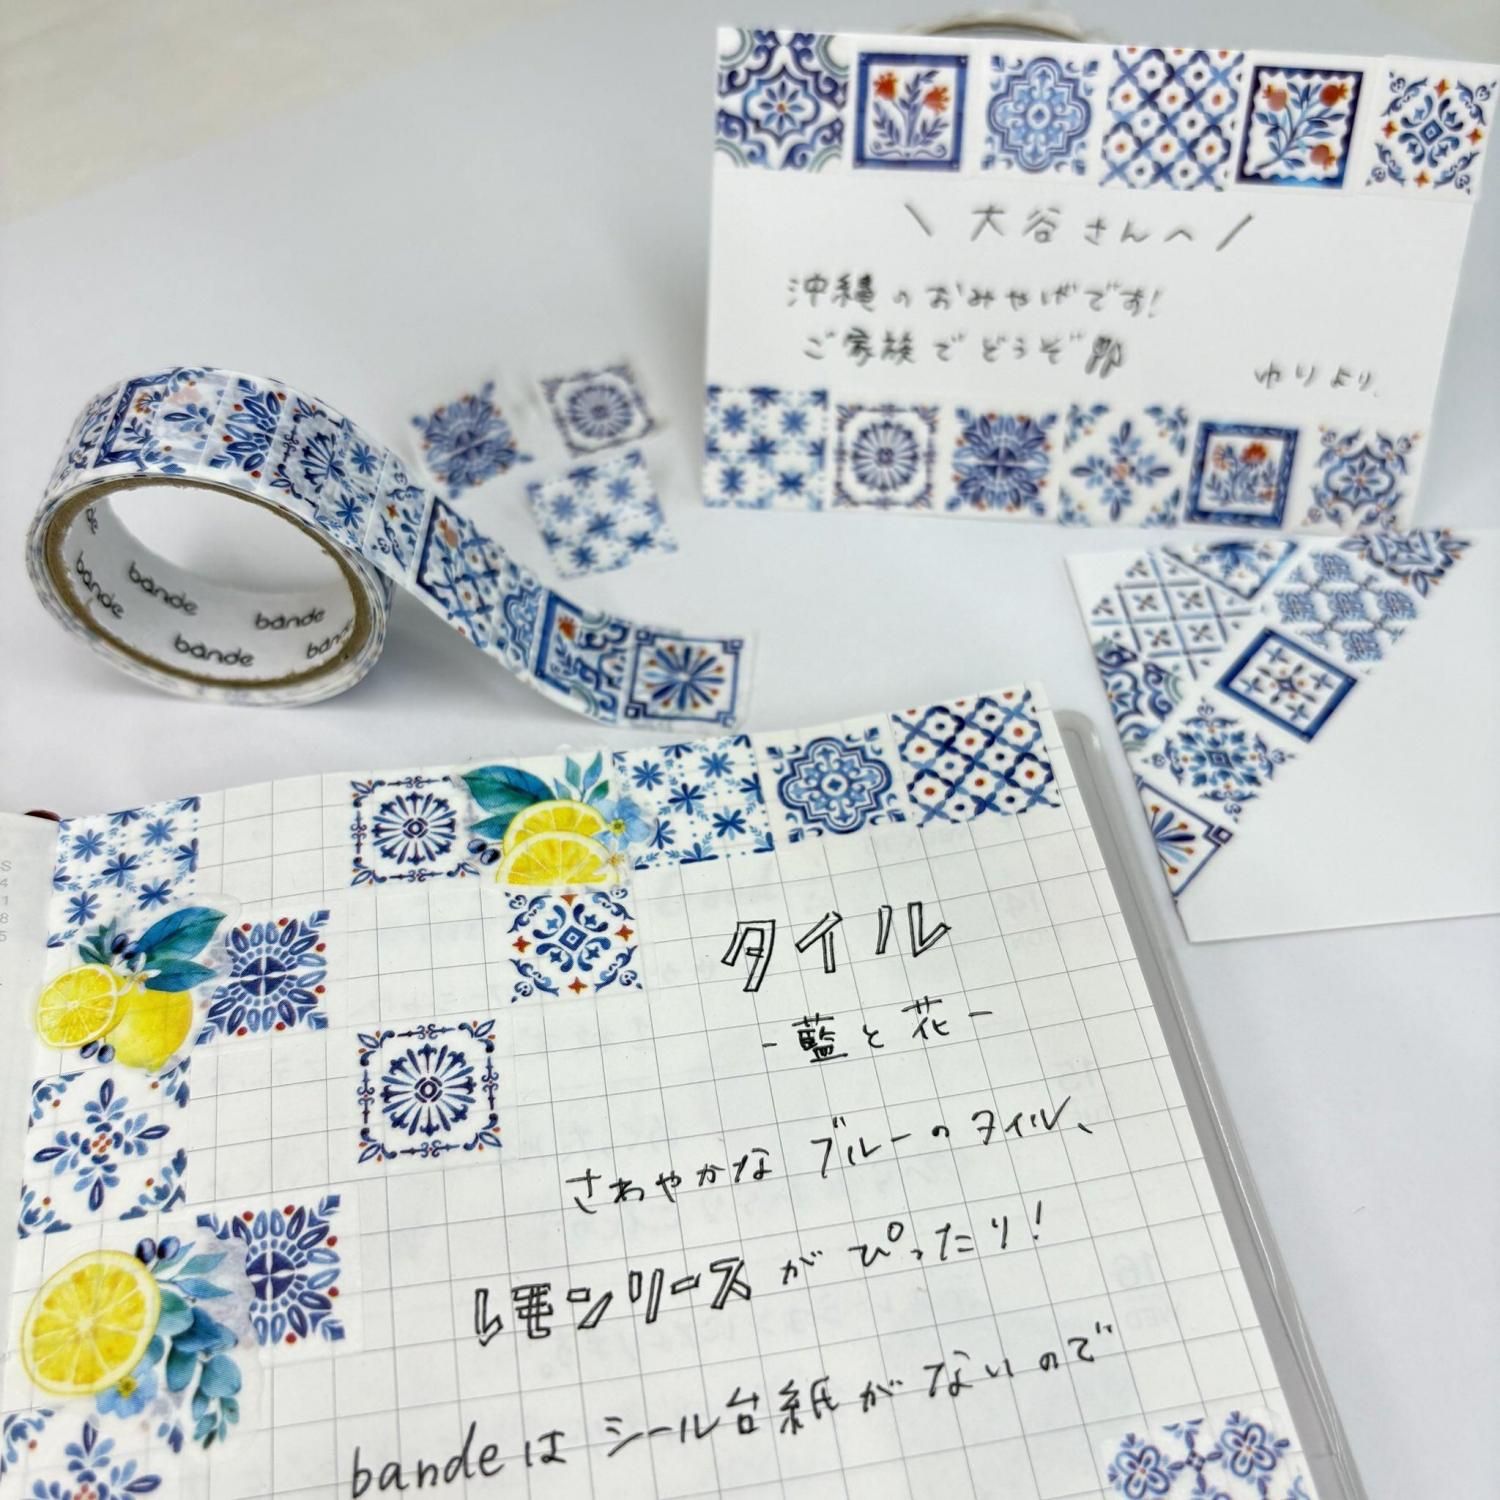 ＼ 大谷さんへ ／
沖縄のおみやげです!
ご家族でどうぞ
ゆりより.
bande
bande
bande
bande
bande
タイル
-藍と花-
さわやかな ブルーのタイル、
レモンリースがぴったり!
bandeはシール台紙がないので